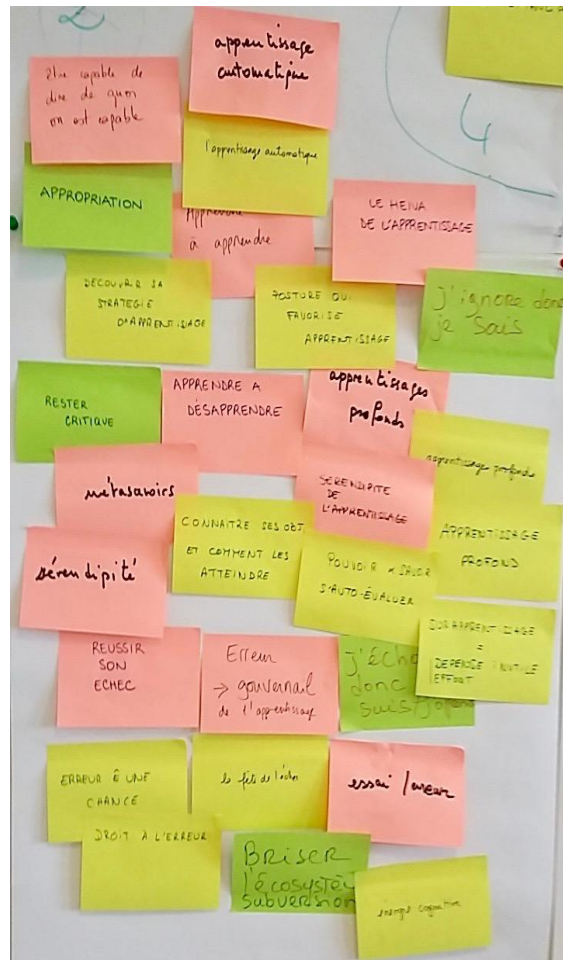 2
4
être capable de
dire de quoi
on est capable
apprentissage
automatique
l'apprentissage automatique
APPROPRIATION
Apprendre
à apprendre
LE HEIVA
DE L'APPRENTISSAGE
DECOUVRIR SA
STRATEGIE
D'APPRENTISSAGE
POSTURE QUI
FAVORISE
APPRENTISSAGE
j'ignore donc
je sais
RESTER
CRITIQUE
APPRENDRE A
DÉSAPPRENDRE
apprentissages
profonds
apprentissage profond
métasavoirs
SERENDIPITE
DE
L'APPRENTISSAGE
CONNAITRE SES OBJ
ET COMMENT LES
ATTEINDRE
APPRENTISSAGE
PROFOND
sérendipité
POUVOIR & SAVOIR
S'AUTO-ÉVALUER
SURAPPRENTISSAGE
=
DEPENSE INUTILE
EFFORT
REUSSIR
SON
ECHEC
Erreur
→ gouvernail
de l'apprentissage
j'écho
donc
suis
ERREUR È UNE
CHANCE
la fête de l'échec
essai / erreur
DROIT À L'ERREUR
BRISER
l'écosystè
subversion
énergie cognitive